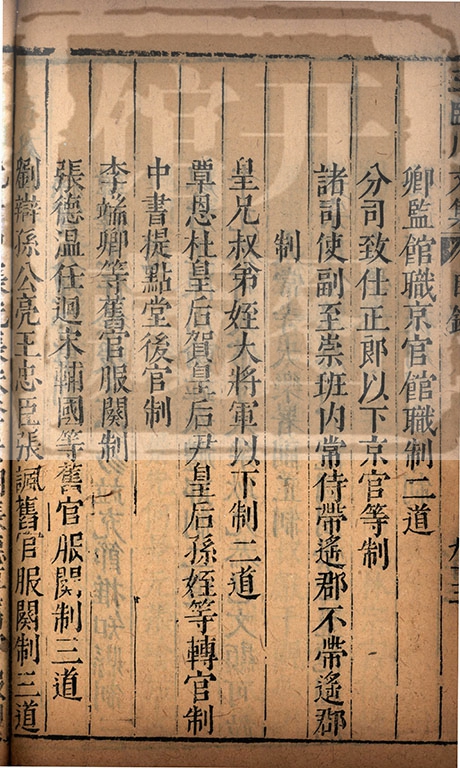 卿監館職京官館職制二道
分司致仕正郎以下京官等制
諸司使副至崇班内常侍帶遙郡不帶遙郡
制
皇兄叔弟姪大將軍以下制二道
覃恩杜皇后賀皇后尹皇后孫姪等轉官制
中書提點堂後官制
李端卿等舊官服闋制
張德溫任迴宋輔國等舊官服闋制三道
劉辯孫公亮王忠臣張諷舊官服闋制三道